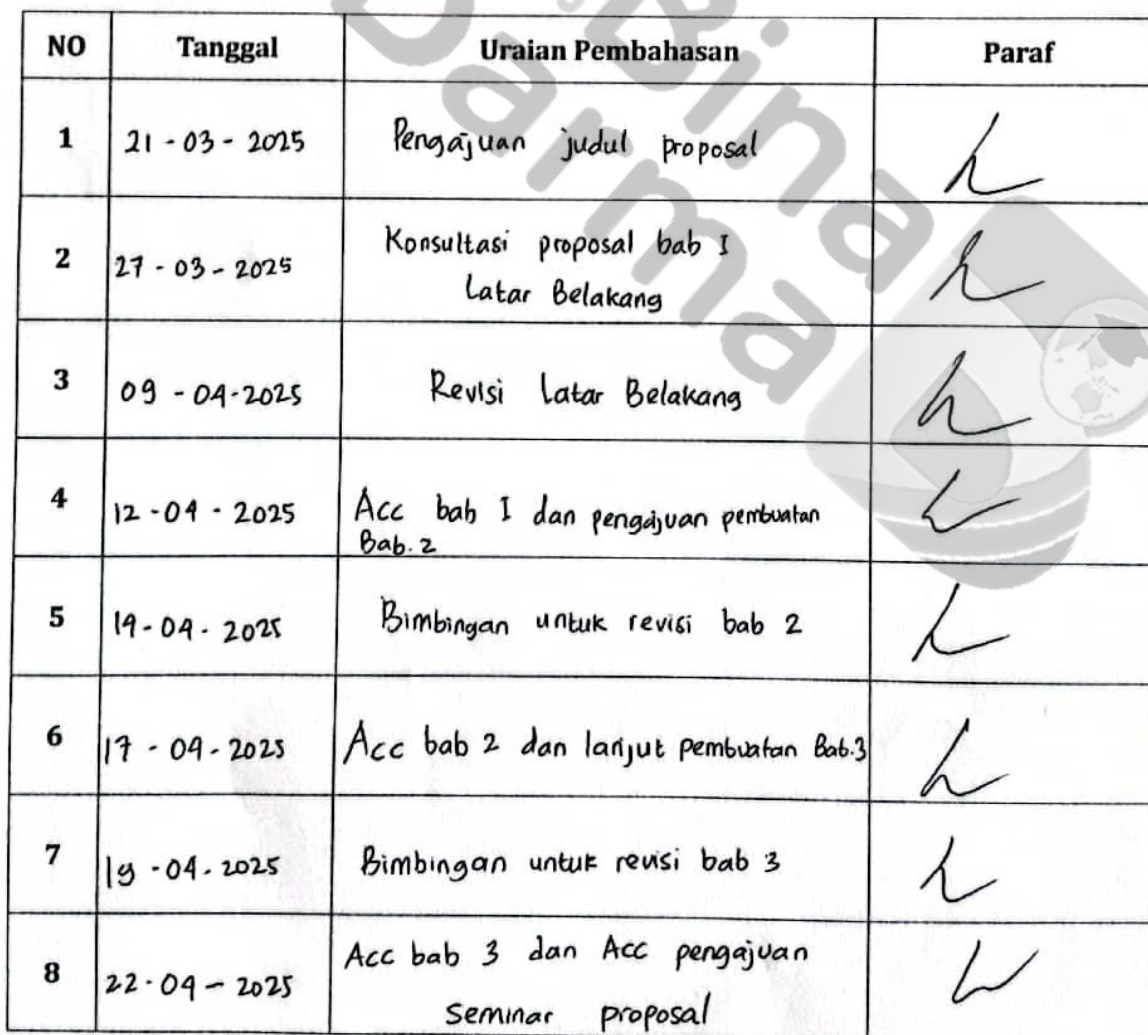 Bina
Darma
NO Tanggal Uraian Pembahasan Paraf
1 21-03-2025 Pengajuan judul proposal
2 27-03-2025 Konsultasi proposal bab I
Latar Belakang
3 09-04-2025 Revisi Latar Belakang
4 12-04-2025 Acc bab I dan pengajuan pembuatan
Bab.2
5 14-04-2025 Bimbingan untuk revisi bab 2
6 17-04-2025 Acc bab 2 dan lanjut pembuatan Bab.3
7 19-04-2025 Bimbingan untuk revisi bab 3
8 22-04-2025 Acc bab 3 dan Acc pengajuan
seminar proposal